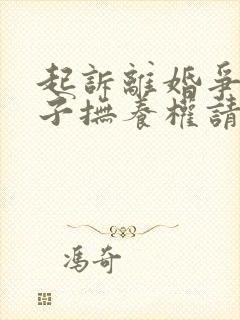 起訴離婚爭
子撫養權請
馮奇